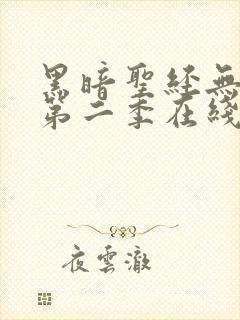 黑暗聖經無
第二季在綫
夜雲澈